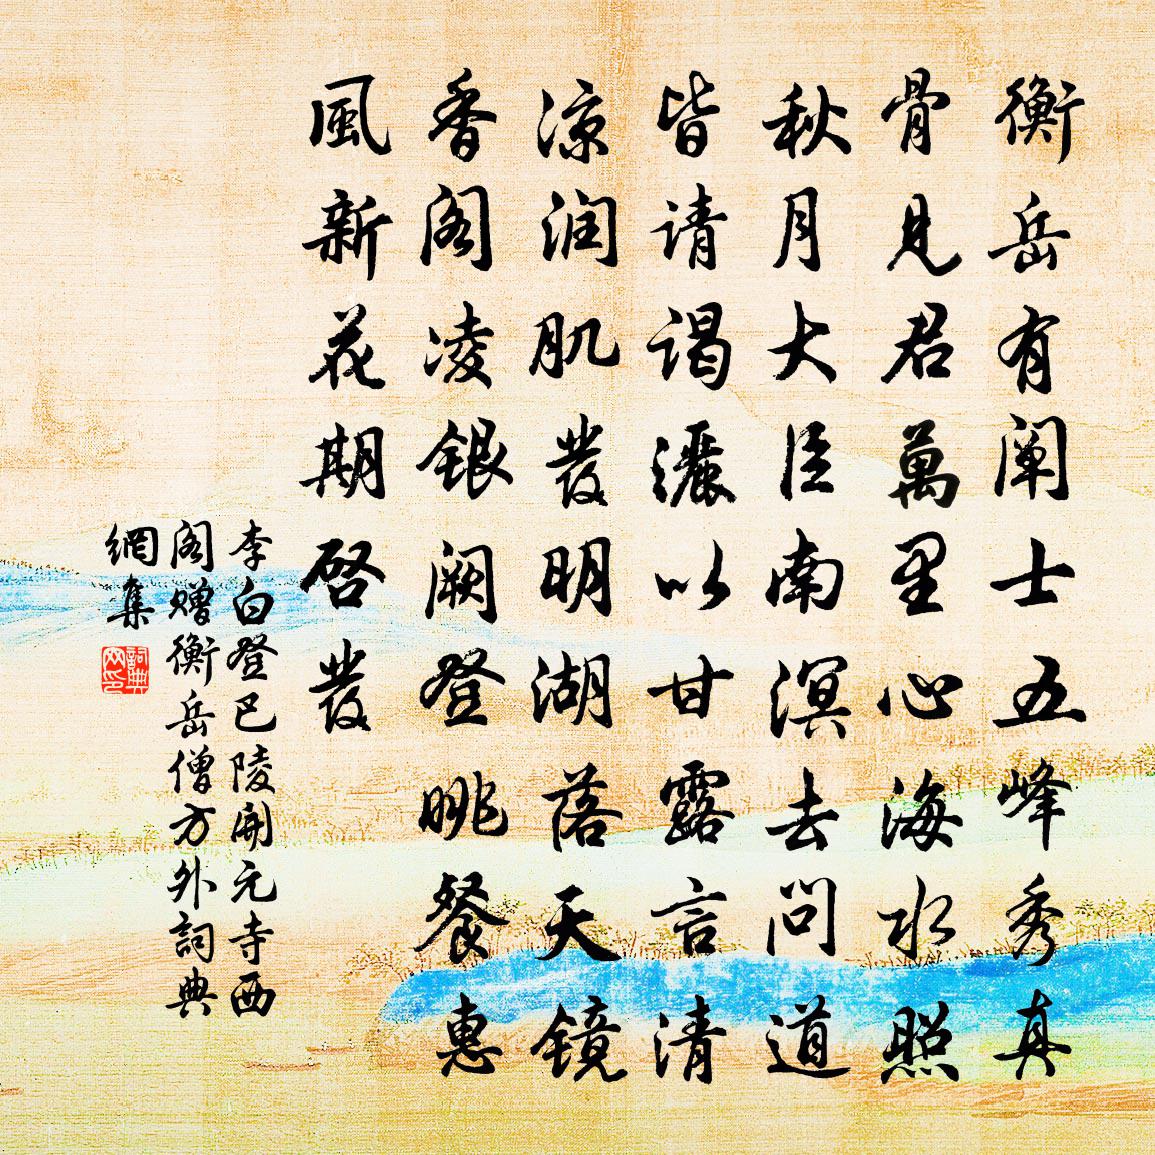 衡岳有阐士五峰秀真
骨見君萬里心海水照
秋月大臣南溟去问道
皆请谒灑以甘露言清
凉润肌發明湖落天镜
香阁凌银阙登眺餐惠
風新花期啓發
李白登巴陵開元寺西
阁赠衡岳僧方外詞典
網集
詞典网印